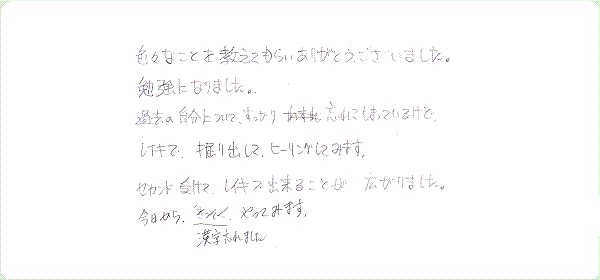 色々なことを教えてもらいありがとうございました。
勉強になりました。
過去の自分について、すっかり 忘れてしまっているけど、
レイキで、掘り出して、ヒーリングしてみます。
セカンド受けて、レイキで出来ることが 広がりました。
今日から、さっそく、やってみます。
漢字忘れました